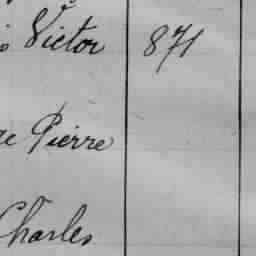 Victor 871
Pierre
Charles